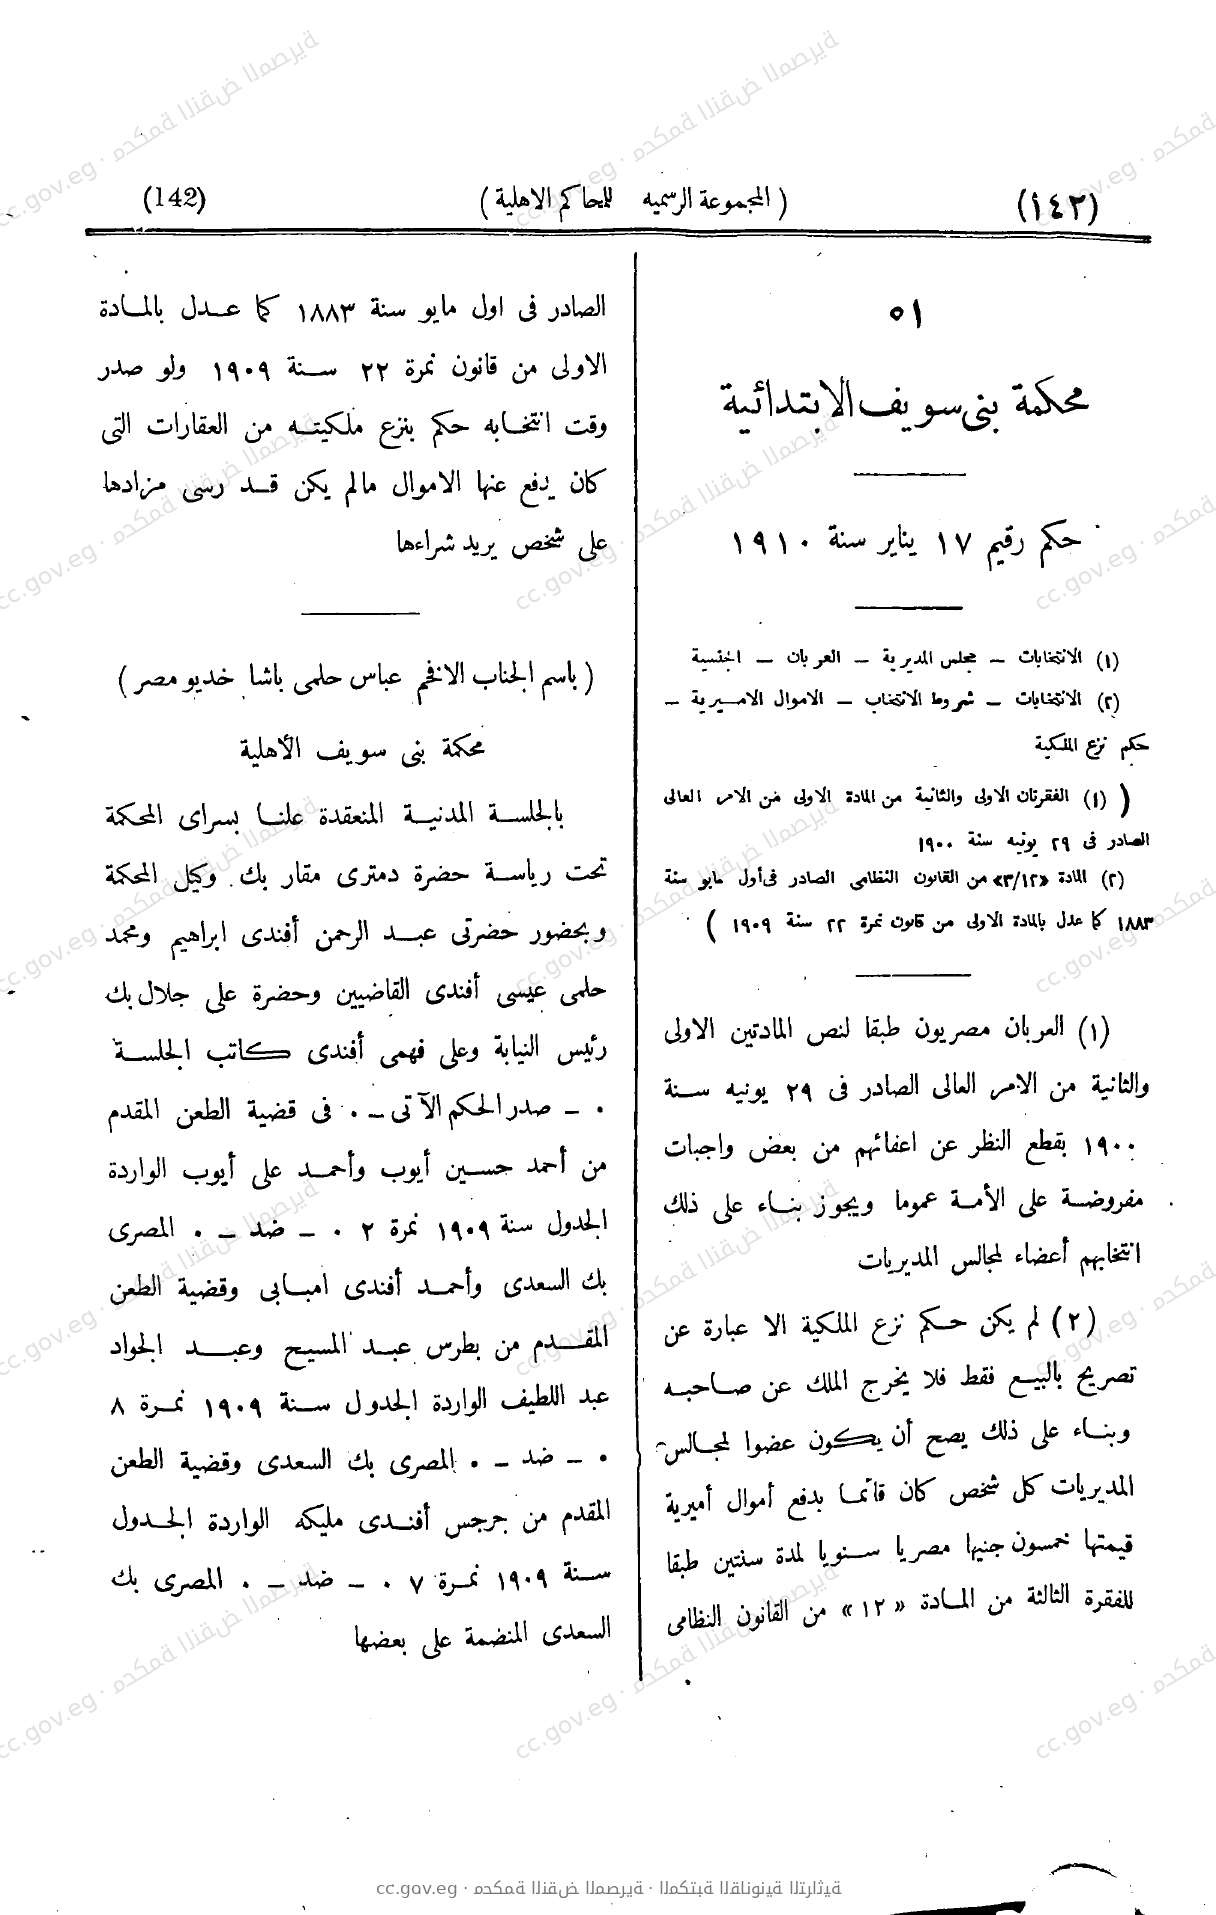 (١٤٢) ( المجموعة الرسميه للمحاكم الاهلية ) (142)
٥١
محكمة بنى سويف الابتدائية
حكم رقيم ١٧ يناير سنة ١٩١٠
(١) الانتخابات – مجلس المديرية – العربان – الجنسية
(٢) الانتخابات – شروط الانتخاب – الاموال الاميرية –
حكم نزع الملكية
( (١) الفقرتان الاولى والثانية من المادة الاولى من الامر العالى
الصادر فى ٢٩ يونيه سنة ١٩٠٠
(٢) المادة «٣/١٢» من القانون النظامى الصادر فى أول مايو سنة
١٨٨٣ كما عدل بالمادة الاولى من قانون نمرة ٢٢ سنة ١٩٠٩ )
(١) العربان مصريون طبقا لنص المادتين الاولى
والثانية من الامر العالى الصادر فى ٢٩ يونيه سنة
١٩٠٠ بقطع النظر عن اعفائهم من بعض واجبات
مفروضة على الأمة عموما ويجوز بناء على ذلك
انتخابهم أعضاء لمجالس المديريات
(٢) لم يكن حكم نزع الملكية الا عبارة عن
تصريح بالبيع فقط فلا يخرج الملك عن صاحبه
وبناء على ذلك يصح أن يكون عضوا لمجالس
المديريات كل شخص كان قائما بدفع أموال أميرية
قيمتها خمسون جنيها مصريا سنويا لمدة سنتين طبقا
للفقرة الثالثة من المادة «١٢» من القانون النظامى
الصادر فى اول مايو سنة ١٨٨٣ كما عدل بالمادة
الاولى من قانون نمرة ٢٢ سنة ١٩٠٩ ولو صدر
وقت انتخابه حكم بنزع ملكيته من العقارات التى
كان يدفع عنها الاموال مالم يكن قد رسى مزادها
على شخص يريد شراءها
( باسم الجناب الافخم عباس حلمى باشا خديو مصر )
محكمة بنى سويف الأهلية
بالجلسة المدنية المنعقدة علنا بسراى المحكمة
تحت رياسة حضرة دمترى مقار بك وكيل المحكمة
وبحضور حضرتى عبد الرحمن أفندى ابراهيم ومحمد
حلمى عيسى أفندى القاضيين وحضرة على جلال بك
رئيس النيابة وعلى فهمى أفندى كاتب الجلسة
٠ – صدر الحكم الآتى – ٠ فى قضية الطعن المقدم
من أحمد حسين أيوب وأحمد على أيوب الواردة
الجدول سنة ١٩٠٩ نمرة ٢ ٠ – ضد – ٠ المصرى
بك السعدى وأحمد أفندى امبابى وقضية الطعن
المقدم من بطرس عبد المسيح وعبد الجواد
عبد اللطيف الواردة الجدول سنة ١٩٠٩ نمرة ٨
٠ – ضد – ٠ المصرى بك السعدى وقضية الطعن
المقدم من جرجس أفندى مليكه الواردة الجدول
سنة ١٩٠٩ نمرة ٧ ٠ – ضد – ٠ المصرى بك
السعدى المنضمة على بعضها
cc.gov.eg · محكمة النقض المصرية · المكتبة القانونية التراثية